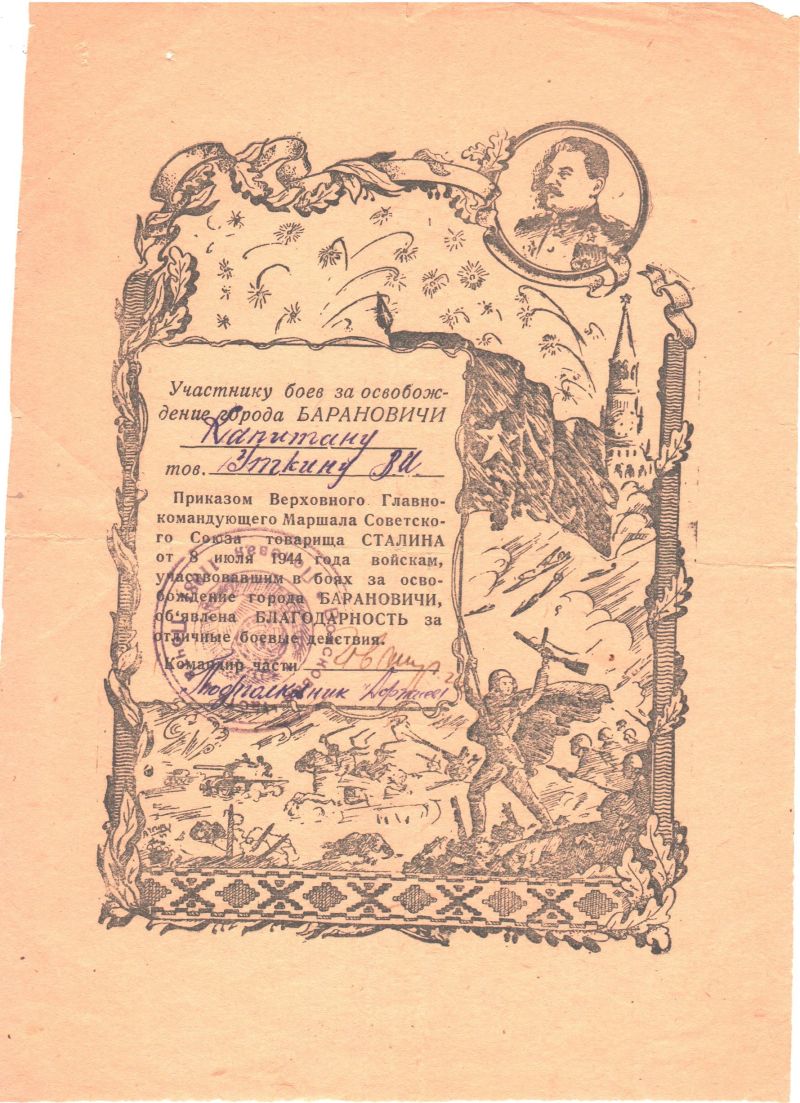 Участнику боев за освобож-
дение города БАРАНОВИЧИ
Капитану
тов. Уткину В И.
Приказом Верховного Главно-
командующего Маршала Советско-
го Союза товарища СТАЛИНА
от 8 июля 1944 года войскам,
участвовавшим в боях за осво-
бождение города БАРАНОВИЧИ,
об'явлена БЛАГОДАРНОСТЬ за
отличные боевые действия.
Командир части
Подполковник